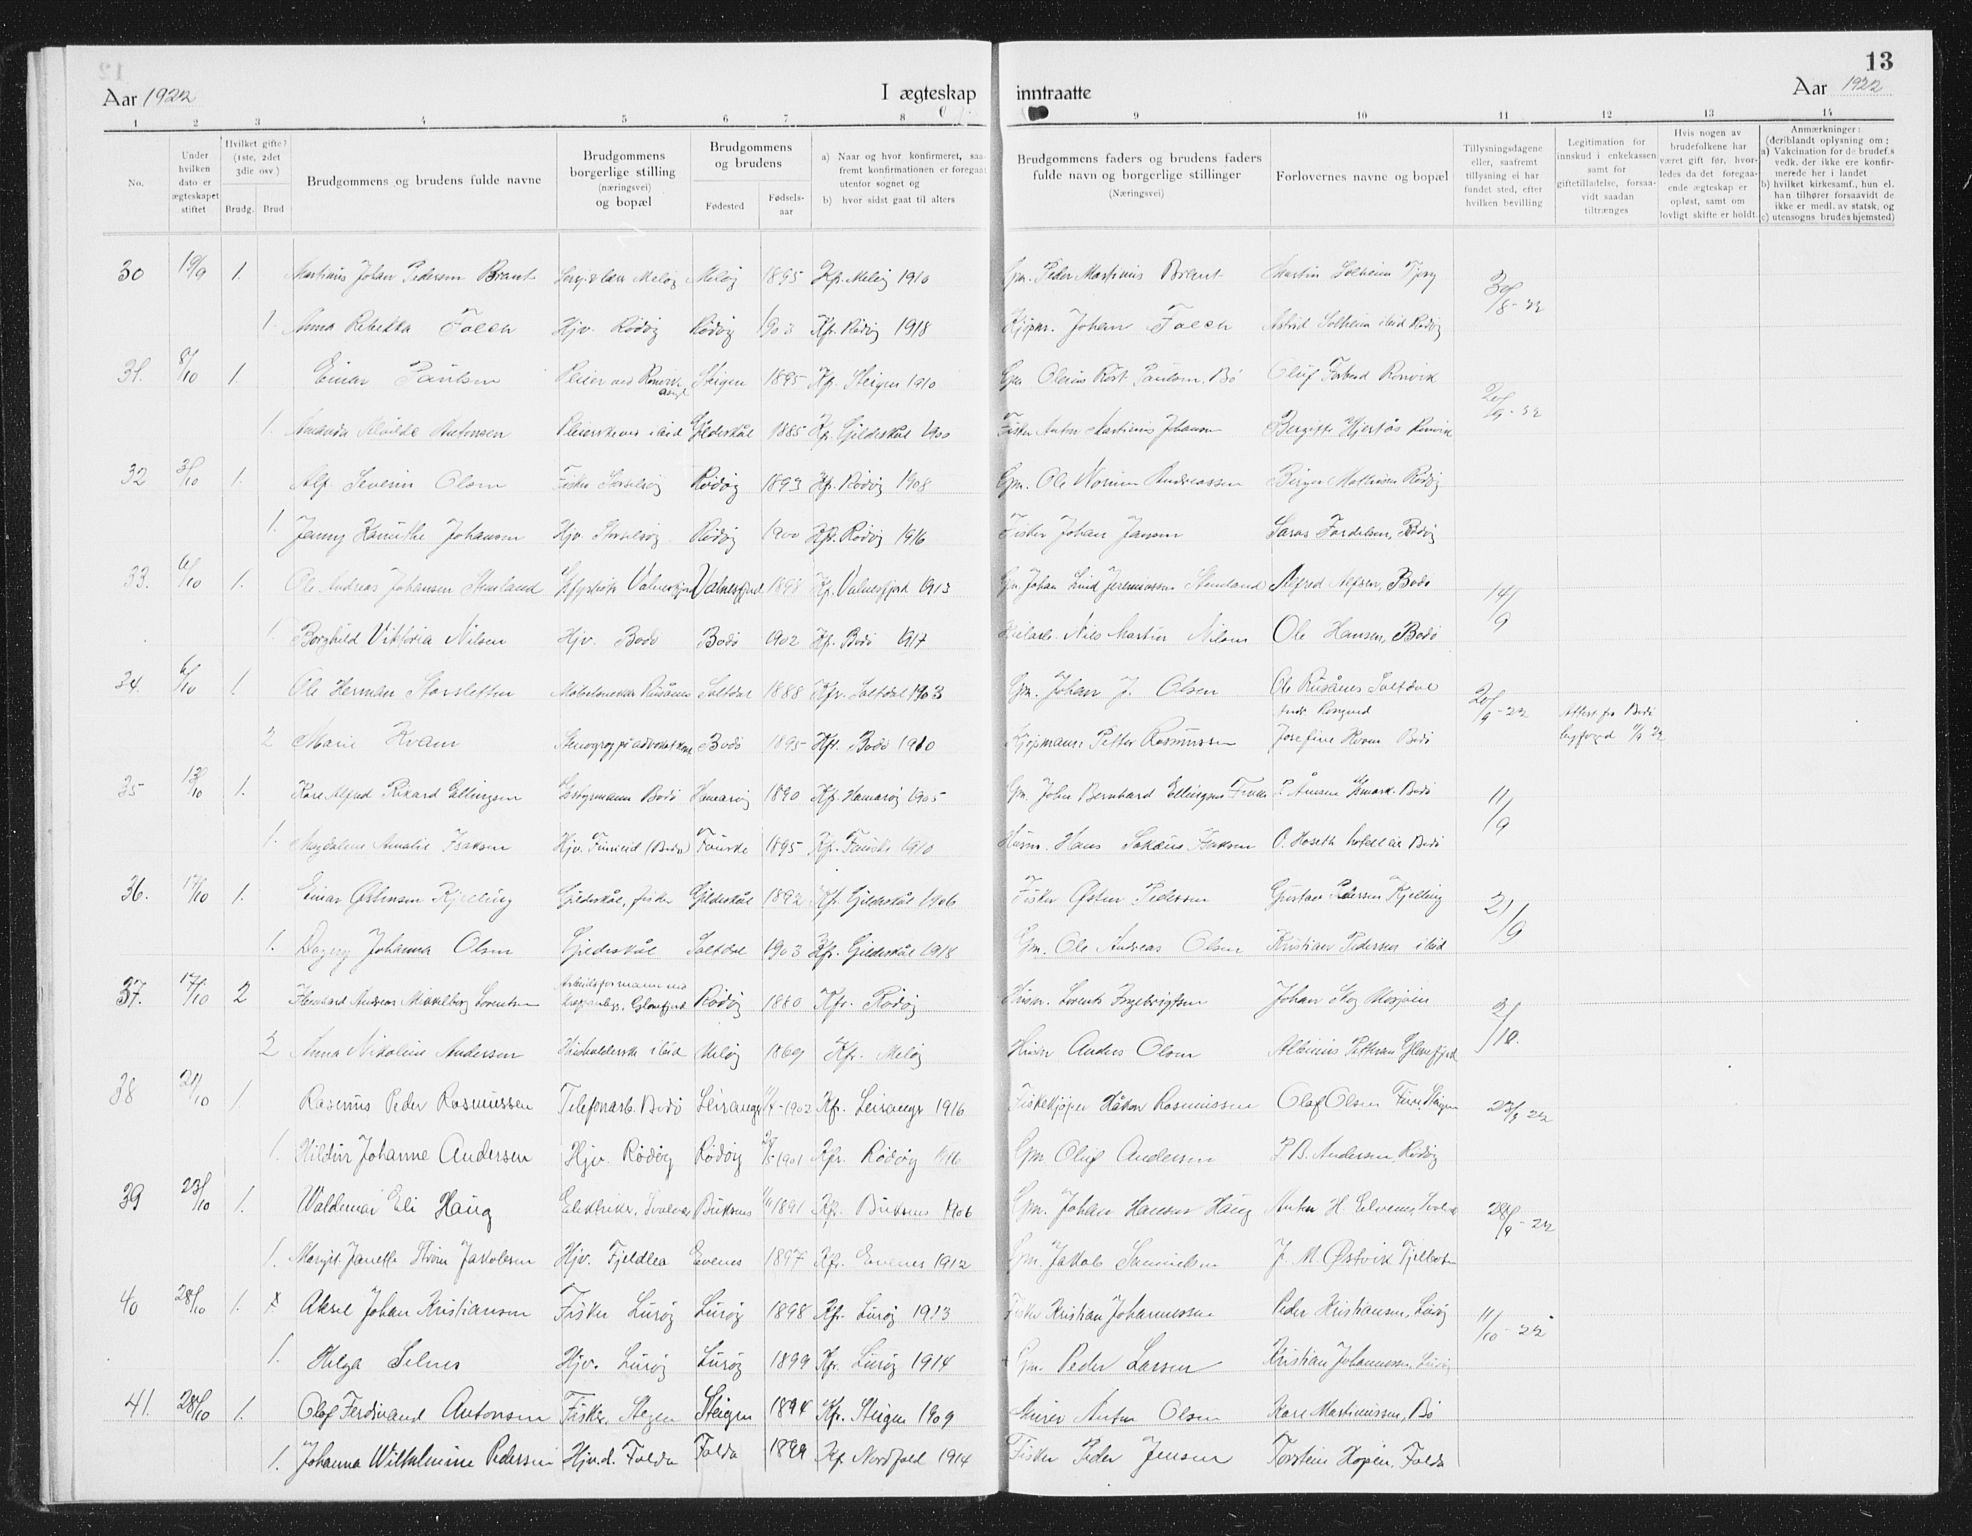 13
Aar 1922 I ægteskap inntraatte Aar 1922
1 2 3 4 5 6 7 8 9 10 11 12 13 14
No.
Under hvilken dato er ægteskapet stiftet
Hvilket gifte? (1ste, 2det 3die osv.)
Brudg. Brud
Brudgommens og brudens fulde navne
Brudgommens borgerlige stilling (næringsvei) og bopæl
Brudgommens og brudens
Fødested Fødsels-aar
a) Naar og hvor konfirmeret, saafremt konfirmationen er foregaat utenfor sognet og
b) hvor sidst gaat til alters
Brudgommens faders og brudens faders fulde navn og borgerlige stillinger (Næringsvei)
Forlovernes navne og bopæl
Tillysningsdagene eller, saafremt tillysning ei har fundet sted, efter hvilken bevilling
Legitimation for innskud i enkekassen samt for giftetilladelse, forsaavidt saadan tiltrænges
Hvis nogen av brudefolkene har været gift før, hvorledes da det foregaaende ægteskap er opløst, samt om lovligt skifte er holdt.
Anmærkninger: (deriblandt oplysning om;
a) Vakcination for de brudef.s vedk. der ikke ere konfirmerede her i landet
b) hvilket kirkesamf., hun el. han tilhører forsaavidt de ikke er medl. av statsk. og
c) utensogns brudes hjemsted)
30 19/9 1. Martinus Johan Pedersen Meløy Meløy 1895 Kfr. Meløy 1910 Gm. Peder Martinus Martin Solheim 30/8-22
1. Anna Rebekka Falch Hjv. Rødøy Rødøy 1903 Kfr. Rødøy 1918 Kjøpm. Johan Falch Astrid Solheim ibid Rødøy
31. 8/10 1. Einar Paulsen Pleier ved Steigen 1895 Kfr. Steigen 1910 Gm. Paulsen, Bø Oluf 20/9-22
1. Amanda Alvilde Antonsen ibid Gildeskål 1885 Kfr. Gildeskål 1900 Fisker Anton Martinus Johansen Bergitte Hjertås
32 3/10 1. Alf Severin Olsen Fisker Storselsøy Rødøy 1893 Kfr. Rødøy 1908 Gm. Ole Andreassen Birger Mathisen Rødøy
1. Jenny Johansen Hjv. Storselsøy Rødøy 1900 Kfr. Rødøy 1916 Fisker Johan Jansen Rødøy
33. 6/10 1. Ole Andreas Johansen Valnesfjord Valnesfjord Kfr. Valnesfjord 1913 Gm. Johan Lind Jeremiassen Alfred Alfsen, Bodø 14/9
1. Borghild Viktoria Nilsen Hjv. Bodø Bodø 1902 Kfr. Bodø 1917 Nils Martin Nilsen Ole Hansen, Bodø
34. 6/10 1. Ole Herman Storsletten Saltdal 1888 Kfr. Saltdal 1903 Gm. Johan J. Olsen Ole Rusånes Saltdal 20/9-22
2 Marie Kvam Bodø 1895 Kfr. Bodø 1910 Kjøpmann Petter Rasmussen Josefine Bodø Attest fra Bodø
35 13/10 1. Kare Alfred Rikard Ellingsen Bodø Hamarøy 1890 Kfr. Hamarøy 1905 Gm. Johan Bernhard Ellingsen Bodø 11/9
1. Magdalene Amalie Isaksen Hjv. (Bodø) Fauske 1895 Kfr. Fauske 1910 Husm. Hans Isaksen O. Hoseth Bodø
36. 14/10 1. Einar Østensen Kjelling Gildeskål, fisker Gildeskål 1892 Kfr. Gildeskål 1906 Fisker Østen Pedersen Gustav Pedersen Kjelling 21/9
1. Dagny Johanna Olsen Gildeskål Saltdal 1903 Kfr. Gildeskål 1918 Gm. Ole Andreas Olsen Kristian Pedersen ibid
37. 17/10 2 Andreas Mikkelborg Lorentsen Arbeidsformann ved Glomfjord Rødøy 1880 Kfr. Rødøy Husm. Lorents Ingebrigtsen Johan Mosjøen 2/10.
2 Anna Nikoline Andersen Husholderske ibid Meløy 1869 Kfr. Meløy Husm Anders Olsen Albinus Pettersen Glomfjord
38 21/10 1. Rasmus Peder Rasmussen Telefonarb. Bodø Leiranger 1902 Kfr. Leiranger 1916 Fiskekjøper Håkon Rasmussen Olaf Olsen 23/9 22
1. Hildur Johanne Andersen Hjv. Rødøy Rødøy 1901 Kfr. Rødøy 1916 Gm. Oluf Andersen P. B. Andersen Rødøy
39 23/10 1. Waldemar Eli Haug Elektriker, Svolvær Buksnes 1891 Kfr. Buksnes 1906 Gm. Johan Hansen Haug Anton H. Svolvær 28/9-22
1. Margit Janette Jakobsen Hjv. Fjeldlea Evenes 1897 Kfr. Evenes 1912 Gm. Jakob Samuelsen J. M. Østvik
40 28/10 1. Aksel Johan Kristiansen Fisker Lurøy Lurøy 1898 Kfr. Lurøy 1913 Fisker Kristian Johannessen Peder Kristiansen, Lurøy 11/10-22
1. Helga Selnes Hjv. Lurøy Lurøy 1899 Kfr. Lurøy 1914 Gm. Peder Larsen Kristian Johannessen, Lurøy
41. 28/10 1. Olaf Ferdinand Antonsen Fisker, Stegen Steigen 1894 Kfr. Steigen 1909 Murer Anton Olsen Kare Martinussen, Bø
1. Johanna Wilhelmine Pedersen Hjv.d. Folda Folda 1899 Kfr. Nordfold 1914 Fisker Peder Jensen Torstein Hopen, Folda